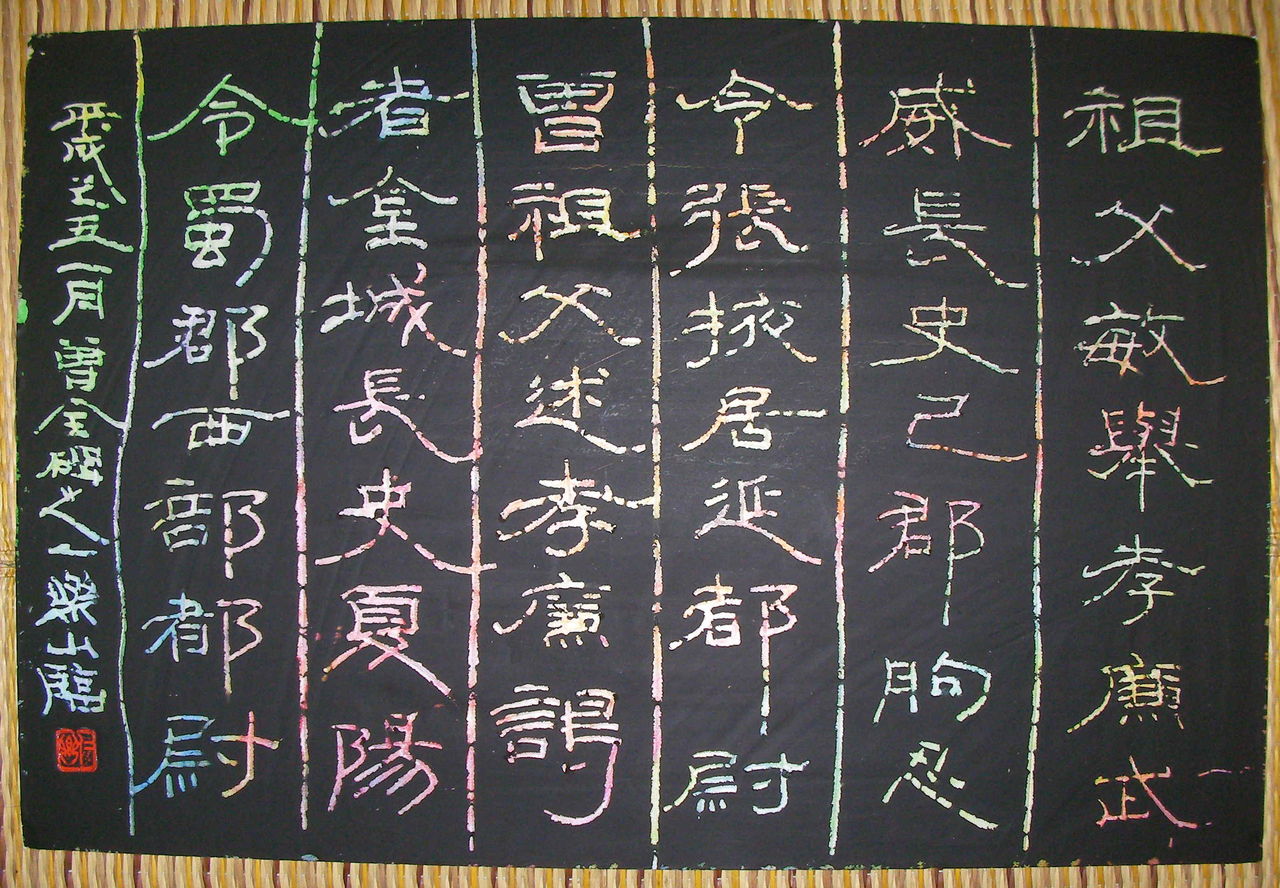 祖父敏舉孝廉武
威長史己郡朐忍
令張掖居延都尉
曾祖父述孝廉謁
者金城長史夏陽
令蜀郡西部都尉
平成廿五一月曹全碑之一樂山臨